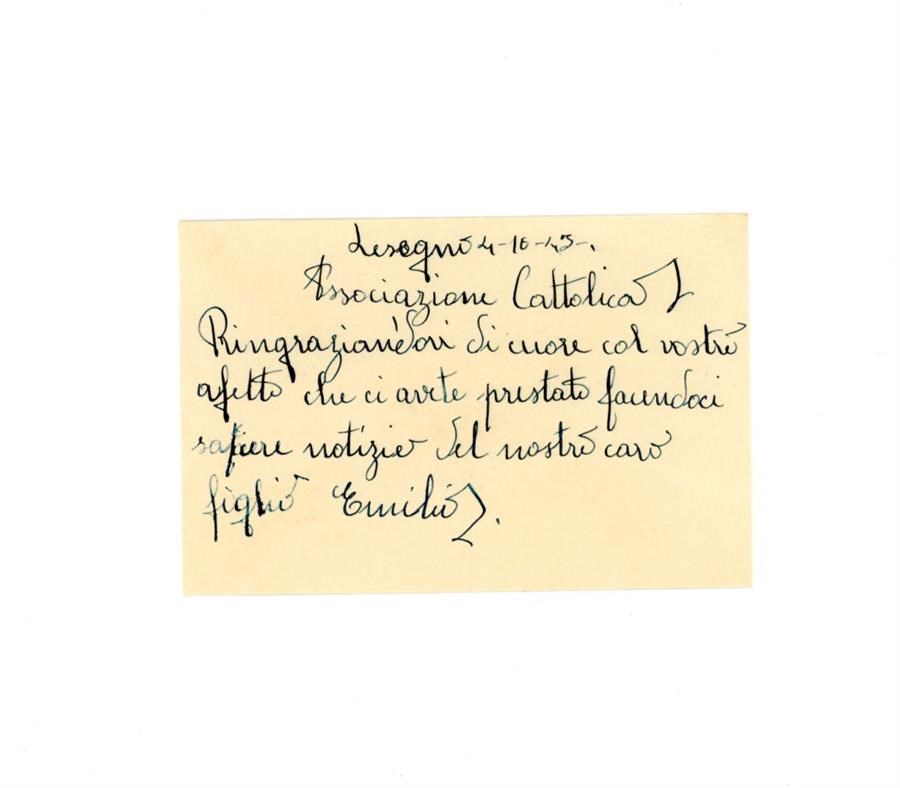 Lesegno 4-10-45-.
Associazione Cattolica
Ringraziandovi di cuore col vostro
afetto che ci avete prestato facendoci
sapere notizie del nostro caro
figlio Emilio.